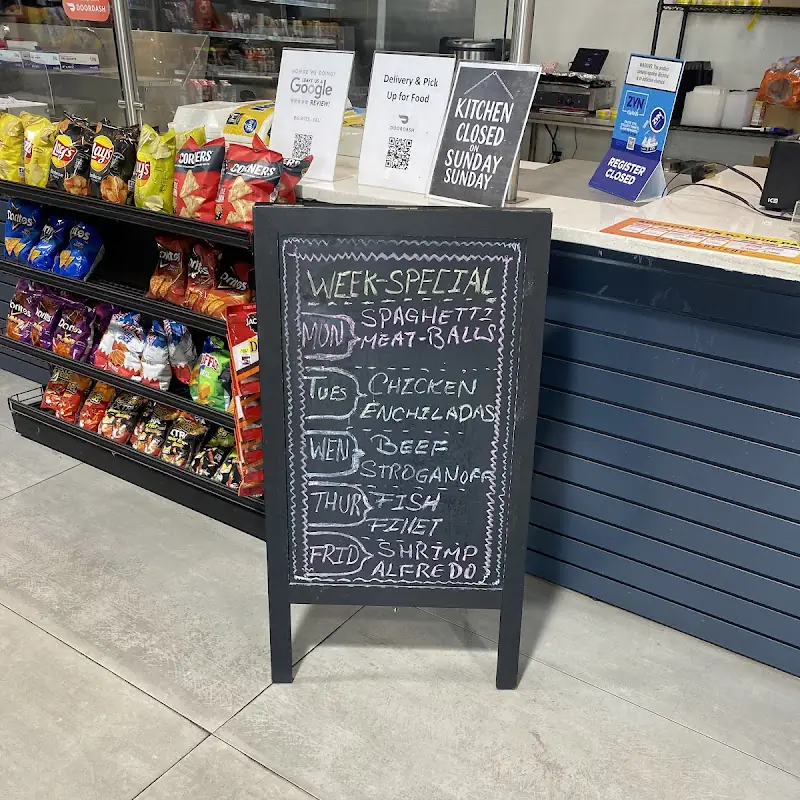 DOORDASH
HOW'RE WE DOING?
LEAVE US A
Google
REVIEW!
Delivery & Pick
Up for Food
DOORDASH
KITCHEN
CLOSED
ON
SUNDAY
SUNDAY
ZYN
REGISTER
CLOSED
Lay's
Lay's
Lay's
CORNERS
CORNERS
Doritos
Doritos
Doritos
Doritos
WEEK-SPECIAL
MON SPAGHETTI
MEAT-BALLS
TUES CHICKEN
ENCHILADAS
WEN BEEF
STROGANOFF
THUR FISH
FILLET
FRID SHRIMP
ALFREDO